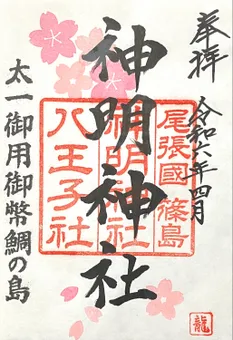 奉拝
令和六年四月
神明神社
尾張國篠島
神明神社
八王子社
太一御用御幣鯛の島
龍